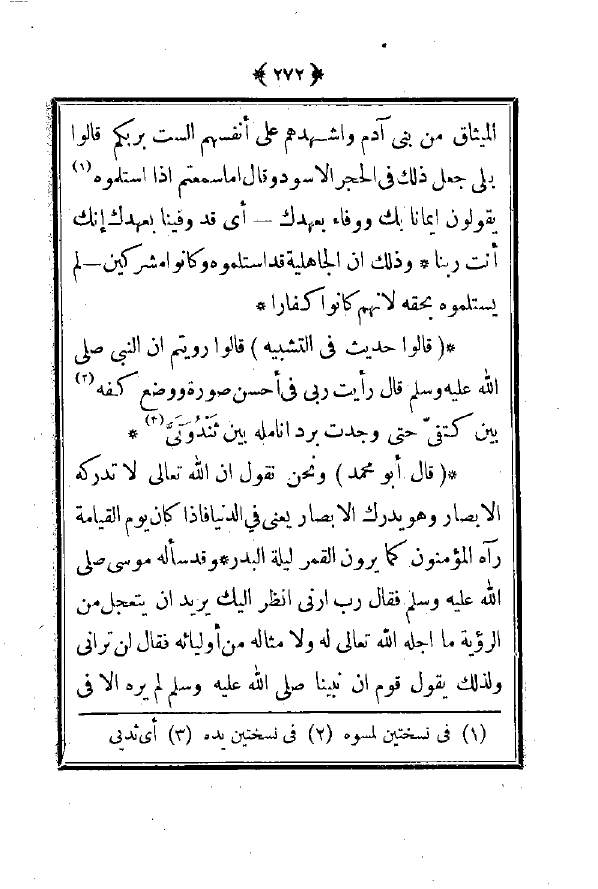 ﴿ ٢٧٢ ﴾
الميثاق من بنى آدم واشهدهم على أنفسهم الست بربكم قالوا
بلى جعل ذلك فى الحجر الاسود وقال اما سمعتم اذا استلموه (١)
يقولون ايمانا بك ووفاء بعهدك — أى قد وفينا بعهدك إنك
أنت ربنا * وذلك ان الجاهلية قد استلموه وكانوا مشركين — لم
يستلموه بحقه لانهم كانوا كفارا *
*( قالوا حديث فى التشبيه ) قالوا رويتم ان النبي صلى
الله عليه وسلم قال رأيت ربى فى أحسن صورة ووضع كفه (٢)
بين كتفىّ حتى وجدت برد انامله بين ثَنْدُوَتَىَّ (٣) *
*( قال أبو محمد ) ونحن نقول ان الله تعالى لا تدركه
الابصار وهو يدرك الابصار يعنى في الدنيا فاذا كان يوم القيامة
رآه المؤمنون كما يرون القمر ليلة البدر * وقد سأله موسى صلى
الله عليه وسلم فقال رب ارنى انظر اليك يريد ان يتعجل من
الرؤية ما اجله الله تعالى له ولا مثاله من أوليائه فقال لن ترانى
ولذلك يقول قوم ان نبينا صلى الله عليه وسلم لم يره الا فى
(١) فى نسختين لمسوه (٢) فى نسختين يده (٣) أى ثديى